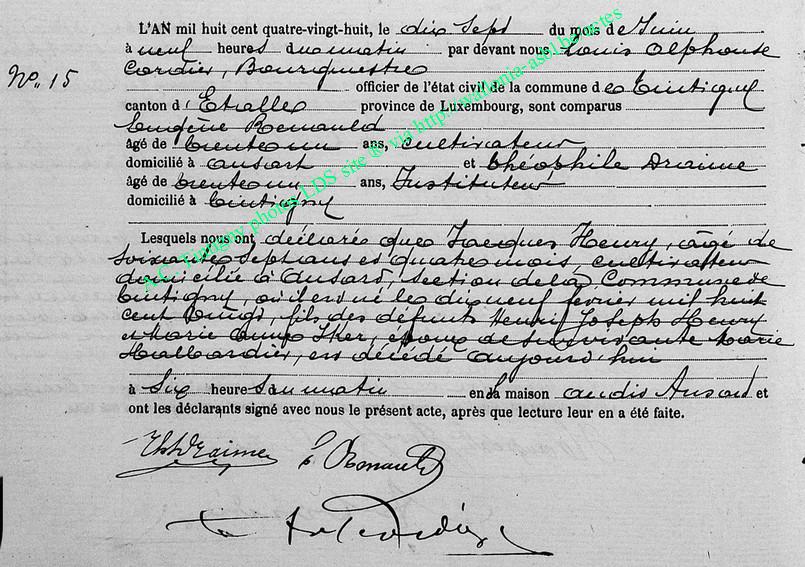 L'AN mil huit cent quatre-vingt-huit, le dix Sept du mois de Juin
à neuf heures du matin par devant nous Louis Alphonse
N° 15
Cordier, Bourgmestre
officier de l'état civil de la commune de Tintigny
canton d'Etalle province de Luxembourg, sont comparus
Eugène Renauld
âgé de trente un ans, cultivateur
domicilié à Ansart et Théophile Draime
âgé de ans, Instituteur
domicilié à Tintigny
Lesquels nous ont déclaré que Jacques Henry, âgé de
soixante Sept ans et quatre mois, cultivateur
domicilié à Ansart, section de la Commune de
Tintigny, où il est né le dix neuf février mil huit
cent vingt, fils des défunts Henri Joseph Henry
et Marie Iker, époux de survivante Marie
Hallardier, est décédé aujourd'hui
à Six heures du matin en sa maison audit Ansart et
ont les déclarants signé avec nous le présent acte, après que lecture leur en a été faite.
Th Draime E Renauld
A.C. Tintigny photos LDS site ® via http://wallonia-asbl.be/actes